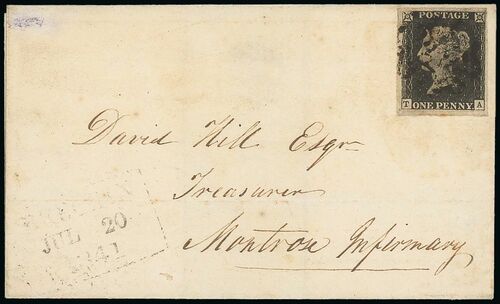 POSTAGE
T A
ONE PENNY
David Hill Esqr
Treasurer
Montrose Infirmary
JUL 20
1841